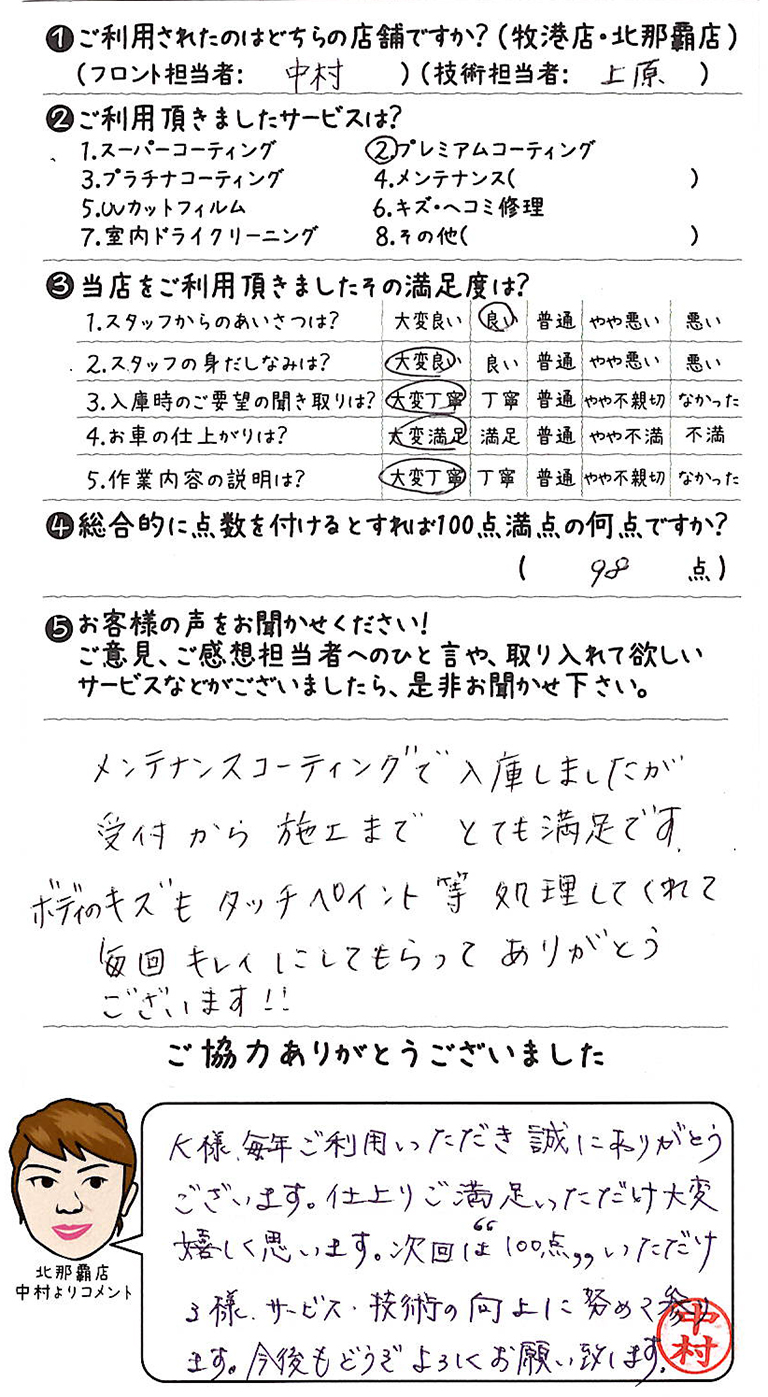 ❶ご利用されたのはどちらの店舗ですか?(牧港店・北那覇店)
(フロント担当者: 中村 )(技術担当者: 上原 )
❷ご利用頂きましたサービスは?
1.スーパーコーティング 2.プレミアムコーティング
3.プラチナコーティング 4.メンテナンス( )
5.UVカットフィルム 6.キズ・ヘコミ修理
7.室内ドライクリーニング 8.その他( )
❸当店をご利用頂きましたその満足度は?
1.スタッフからのあいさつは? 大変良い 良い 普通 やや悪い 悪い
2.スタッフの身だしなみは? 大変良い 良い 普通 やや悪い 悪い
3.入庫時のご要望の聞き取りは? 大変丁寧 丁寧 普通 やや不親切 なかった
4.お車の仕上がりは? 大変満足 満足 普通 やや不満 不満
5.作業内容の説明は? 大変丁寧 丁寧 普通 やや不親切 なかった
❹総合的に点数を付けるとすれば100点満点の何点ですか?
( 98 点)
❺お客様の声をお聞かせください!
ご意見、ご感想担当者へのひと言や、取り入れて欲しい
サービスなどがございましたら、是非お聞かせ下さい。
メンテナンスコーティングで入庫しましたが
受付から施工まで とても満足です
ボディのキズもタッチペイント等 処理してくれて
毎回キレイにしてもらってありがとう
ございます!!
ご協力ありがとうございました
K様、毎年ご利用いただき誠にありがとう
ございます。仕上りご満足いただけ大変
嬉しく思います。次回は“100点„いただけ
る様、サービス・技術の向上に努めて参り
ます。今後もどうぞよろしくお願い致します。
中村
北那覇店
中村よりコメント